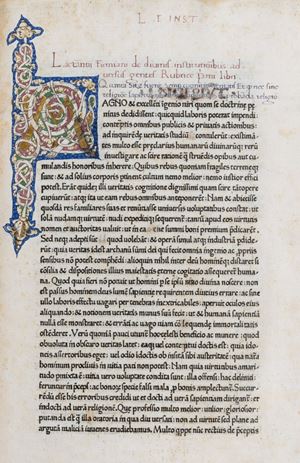 L. F. INST
Lactantii Firmiani de diuinis institutionibus ad
uersus gentes Rubrice primi libri
AGNO & excellēti īgenio uiri quom se doctrine pe
nitus dedidissent: quicquid laboris poterat impendi
contēptis omnibus publicis & priuatis actionibus:
ad inquirēdę ueritatis studiū contulerūt: existimā
tes multo esse pręclarius humanarū diuinarūq; rerū
inuestigare ac scire rationē q̃ struēdis opibus aut cu
mulandis honoribus inherere. Quibus rebus quoniam fragiles terreneq;
sunt: & ad solius corporis ptinent cultum nemo melior: nemo iustior effici
potest. Erāt quidē illi ueritatis cognitione dignissimi quam scire tātopere
cupiuerūt: atq; ita ut eam rebus omnibus anteponerēt. Nam & abiecisse
quosdā res familiares suas & renūtiasse uniuersis uoluptatibus constat: ut
solā nudamq; uirtutē nudi expeditiq; sequerēt. tantū apud eos uirtutis
nomen et auctoritas ualuit: ut in ea omne summi boni premiū pdicarēt.
Sed neq; adepti sūt id quod uolebāt: & operā simul atq; industriā pdide-
rūt: quia ueritas idest archanū sumi dei qui fecit omnia ingenio ac propriis
sensibus nō potest comphēdi: alioquin nihil inter deū hominēq; distaret si
cōsilia & dispositiones illius maiestatis eterne cogitatio assequeret huma-
na. Quod quia fieri nō potuit ut homini p se ipsū ratio diuina nosceret: non
est passus hominē deus lumē sapientie requirentem diutius errare: ac sine
ullo laboris effectu uagari per tenebras inextricabiles: aperuit oculos eius
aliquando: & notionem ueritatis munus suū fecit: ut & humanā sapientiā
nullā esse monstraret: & errāti ac uago uiam cōsequendę immortalitatis
ostēderet. Verū quoniā pauci utunt hoc celesti beneficio ac munere: quod
obuoluta in obscuro ueritas latet: eaq; uel contēptui doctis est: quia ido-
neis assertoribus eget: uel odio īdoctis ob īsitā sibi austeritatē: quā natura
hominum procliuis in uitia pati non potest. Nam quia uirtutibus amari-
tudo pmixta ē: uitia uero uoluptate condita sunt: illa offensi: hac deliniti
ferunt in pceps: ac bonoꝝ specie falsi mala p bonis amplectunt. Succur-
rēdū esse his erroribus credidi ut et docti ad uerā sapientiam dirigant: et
īndocti ad uerā religionē. Que professio multo melior: utilior: gloriosior:
putanda est q̃ illa oratoria in qua diu uersati: non ad uirtutē sed plane ad
argutā maliciā iuuenes erudiebamus. Multo quippe nūc rectius de pceptis